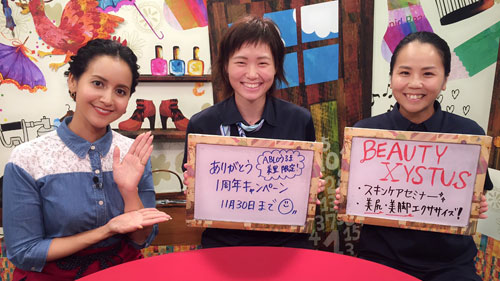 ありがとう
ABLOうるま
具志川限定!
1周年キャンペーン
11月30日まで
BEAUTY
XYSTUS
・スキンケアセミナー
・美尻・美脚エクササイズ!